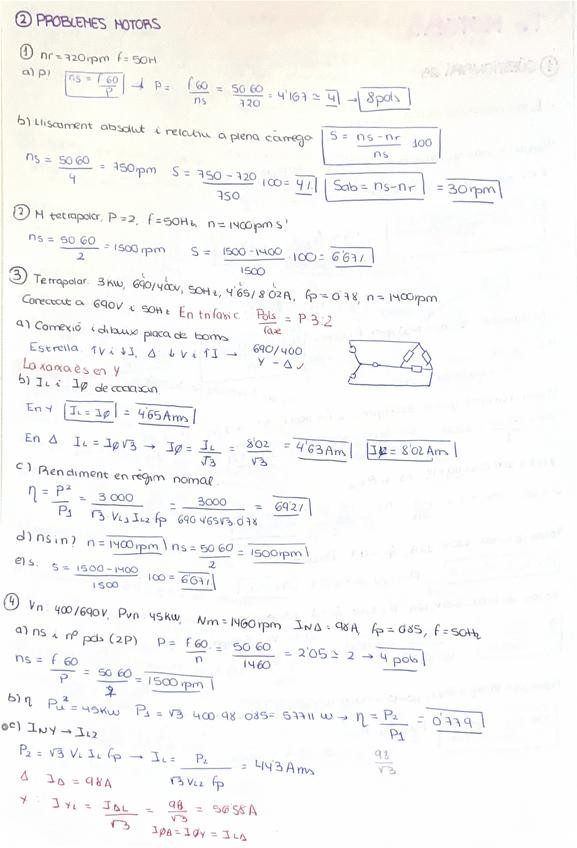 ② PROBLEMES MOTORS
① nr = 720rpm f = 50H
a) P? ns = f 60 / P → P = f 60 / ns = 50 60 / 720 = 4'167 ≃ 4 → 8 pols
b) Lliscament absolut i relatiu a plena càrrega S = ns - nr / ns 100
ns = 50 60 / 4 = 750 rpm S = 750 - 720 / 750 100 = 4% Sab = ns - nr = 30 rpm
② M tetrapolar, P = 2, f = 50Hz, n = 1400rpm s?
ns = 50 60 / 2 = 1500 rpm S = 1500 - 1400 / 1500 · 100 = 6'67%
③ Tetrapolar. 3 KW, 690/400V, 50Hz, 4'65/8'02A, fp = 0'78, n = 1400rpm
Conectat a 690V i 50Hz En trifàsic Pols / fase = P 3:2
a) Connexió i dibuix placa de borns
Estrella ↑V i ↓I, Δ ↓V i ↑I → 690/400
Y - Δ
La xarxa és en Y
b) IL i IØ de
En Y IL = IØ = 4'65 Ams
En Δ IL = IØ √3 → IØ = IL / √3 = 8'02 / √3 = 4'63 Am IL = 8'02 Am
c) Rendiment en règim nomal.
η = P2 / P1 = 3 000 / √3 VL2 IL2 fp = 3000 / 690 4'65 √3 · 0'78 = 69'2%
d) ns i n? n = 1400 rpm ns = 50 60 / 2 = 1500 rpm
e) s. S = 1500 - 1400 / 1500 100 = 6'67%
④ Vn: 400/690V, Pvn 45KW, Nm = 1460 rpm INΔ = 98A, fp = 0'85, f = 50Hz
a) ns i nº pols (2P) P = f 60 / n = 50 60 / 1460 = 2'05 ≃ 2 → 4 pols
ns = f 60 / P = 50 60 / 2 = 1500 rpm
b) η Pu² = 45KW P1 = √3 400 · 98 · 0'85 = 57711 W → η = P2 / P1 = 0'779
c) INY → IL2
P2 = √3 VL IL fp → IL = P2 / √3 VL2 fp = 44'3 Ams
98 / √3
Δ IΔ = 98A
Y: IYL = IΔL / √3 = 98 / √3 = 56'58 A
IØΔ = IØY = ILΔ